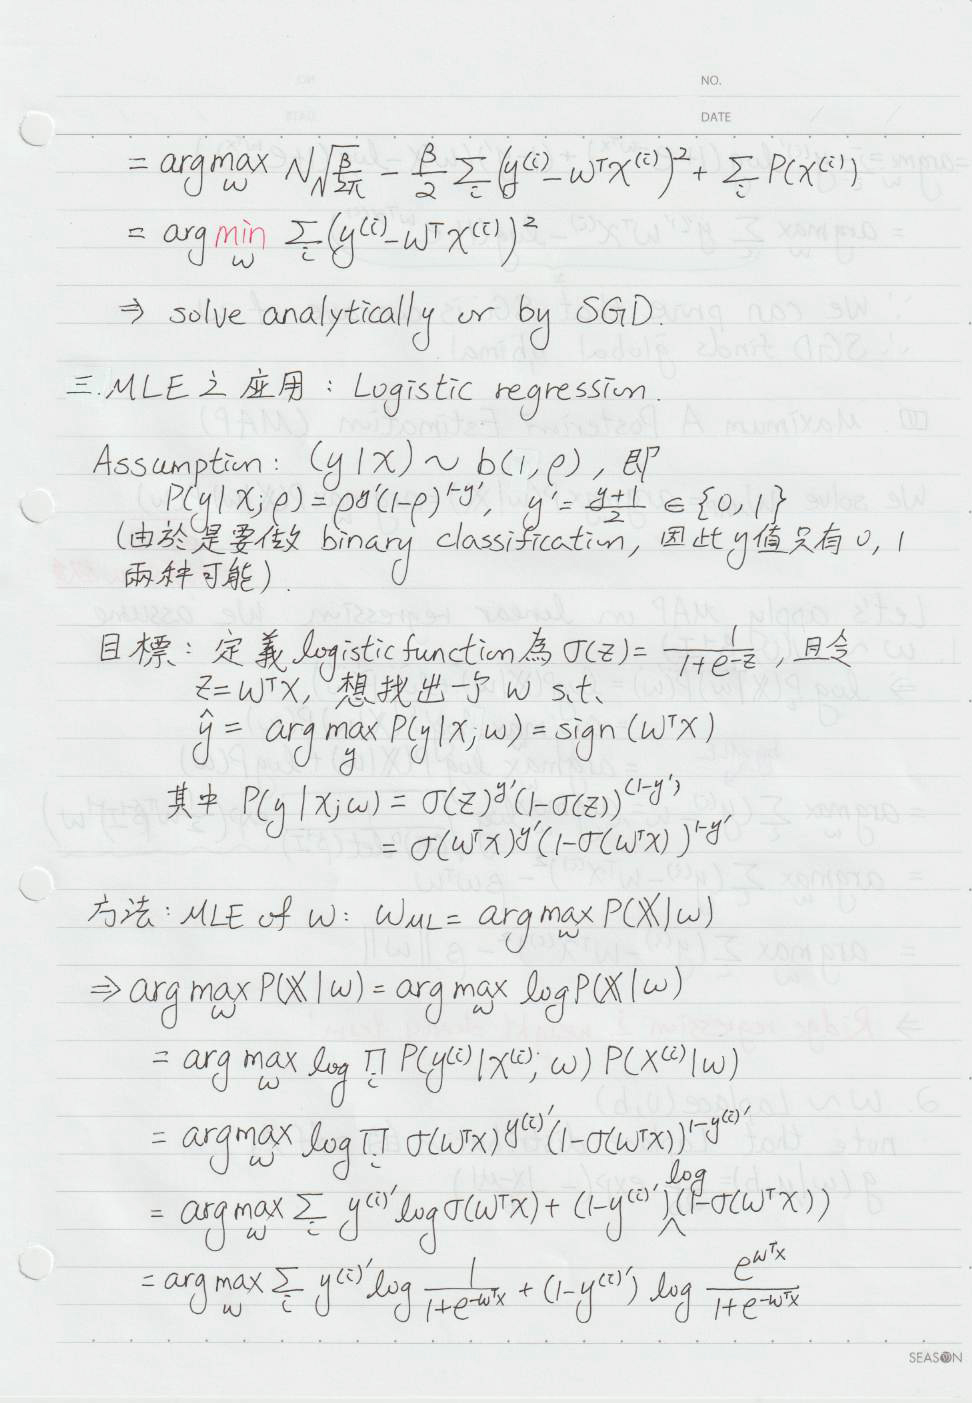 NO.
DATE
= arg max_w N√(β/2π) - β/2 Σ_i (y^(i) - w^T x^(i))^2 + Σ_i P(x^(i))
= arg min_w Σ_i (y^(i) - w^T x^(i))^2
⇒ solve analytically or by SGD.
三. MLE 之应用 : Logistic regression.
Assumption: (y|x) ~ b(1, ρ), 即
P(y|x; ρ) = ρ^y' (1-ρ)^(1-y'), y' = (y+1)/2 ∈ {0, 1}
(由於是要做 binary classification, 因此 y值只有 0, 1
兩种可能).
目標: 定義 logistic function 為 σ(z) = 1/(1+e^-z), 且令
z = w^T x, 想找出一个 w s.t.
ŷ = arg max_y P(y|x; w) = sign (w^T x)
其中 P(y|x; w) = σ(z)^y' (1-σ(z))^(1-y')
= σ(w^T x)^y' (1-σ(w^T x))^(1-y')
方法: MLE of w: w_ML = arg max_w P(𝕏|w)
⇒ arg max_w P(𝕏|w) = arg max_w log P(𝕏|w)
= arg max_w log Π_i P(y^(i)|x^(i); w) P(x^(i)|w)
= arg max_w log Π_i σ(w^T x)^y^(i)' (1-σ(w^T x))^(1-y^(i)')
= arg max_w Σ_i y^(i)' log σ(w^T x) + (1-y^(i)') log (1-σ(w^T x))
= arg max_w Σ_i y^(i)' log 1/(1+e^(-w^T x)) + (1-y^(i)') log e^(w^T x)/(1+e^(-w^T x))
SEASON